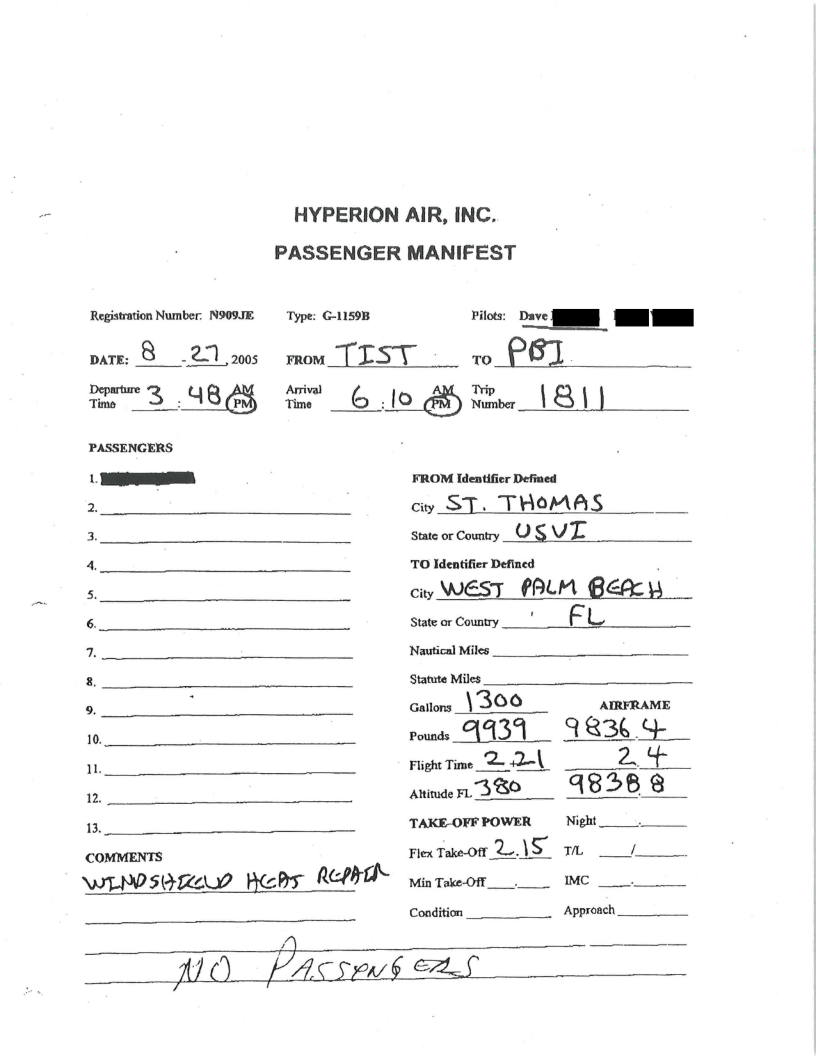 HYPERION AIR, INC.
PASSENGER MANIFEST
Registration Number: N909JE Type: G-1159B Pilots: Dave
DATE: 8 - 27, 2005 FROM TIST TO PBI
Departure Time 3 : 48 AM PM Arrival Time 6 : 10 AM PM Trip Number 1811
PASSENGERS
1.
2.
3.
4.
5.
6.
7.
8.
9.
10.
11.
12.
13.
COMMENTS
WINDSHIELD HEAT REPAIR
FROM Identifier Defined
City ST. THOMAS
State or Country USVI
TO Identifier Defined
City WEST PALM BEACH
State or Country FL
Nautical Miles
Statute Miles
Gallons 1300 AIRFRAME
Pounds 9939 9836.4
Flight Time 2+21 2.4
Altitude FL 380 9838.8
TAKE-OFF POWER Night .
Flex Take-Off 2.15 T/L /
Min Take-Off . IMC .
Condition Approach
NO PASSENGERS